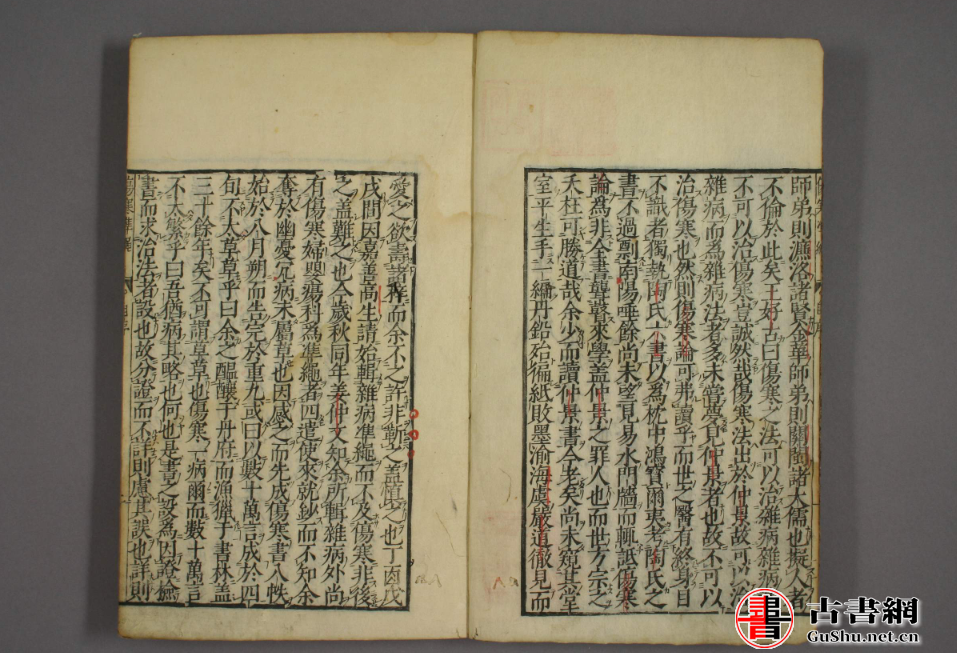 師弟則濂洛諸賢金華師弟則關閩諸大儒也擬人者
不倫於此矣王好古曰傷寒之法可以治雜病雜病
不可以治傷寒豈誠然哉傷寒法出於仲景故可以治
雜病而為雜病法者多未嘗夢見仲景者也故不可以
治傷寒也然則傷寒論可弗讀乎而世之醫有終身目
不識者獨執陶氏六書以為枕中鴻寶爾夷考陶氏之
書不過剽南陽唾餘尚未望見易水門牆而輒詆傷寒
論為非全書聾瞽來學蓋仲景之罪人也而世方宗之
夭枉可勝道哉余少而讀仲景書今老矣尚未窺其堂
室平生手一編丹鉛殆徧紙敗墨渝海虞嚴道徹見而
愛之欲壽諸梓而余不之許非靳之蓋慎之也丁酉戊
戌間因嘉善高生請始輯雜病準繩而不及傷寒非後
之蓋難之也今歲秋同年姜仲文知余所輯雜病外尚
有傷寒婦嬰瘍科為準繩者四遣使來就鈔而不知余
奪於幽憂冗病未屬草也因感之而先成傷寒書八帙
始於八月朔而告完於重九或曰以數十萬言成於四
旬不太草草乎曰余之醞釀于丹府而漁獵于書林蓋
三十餘年矣不可謂草草也傷寒一病爾而數十萬言
不太繁乎曰吾猶病其略也何也是書之設為因證檢
書而求治法者設也故分證而不詳則慮其誤也詳則
傷寒準繩
古書網
GuShu.net.cn